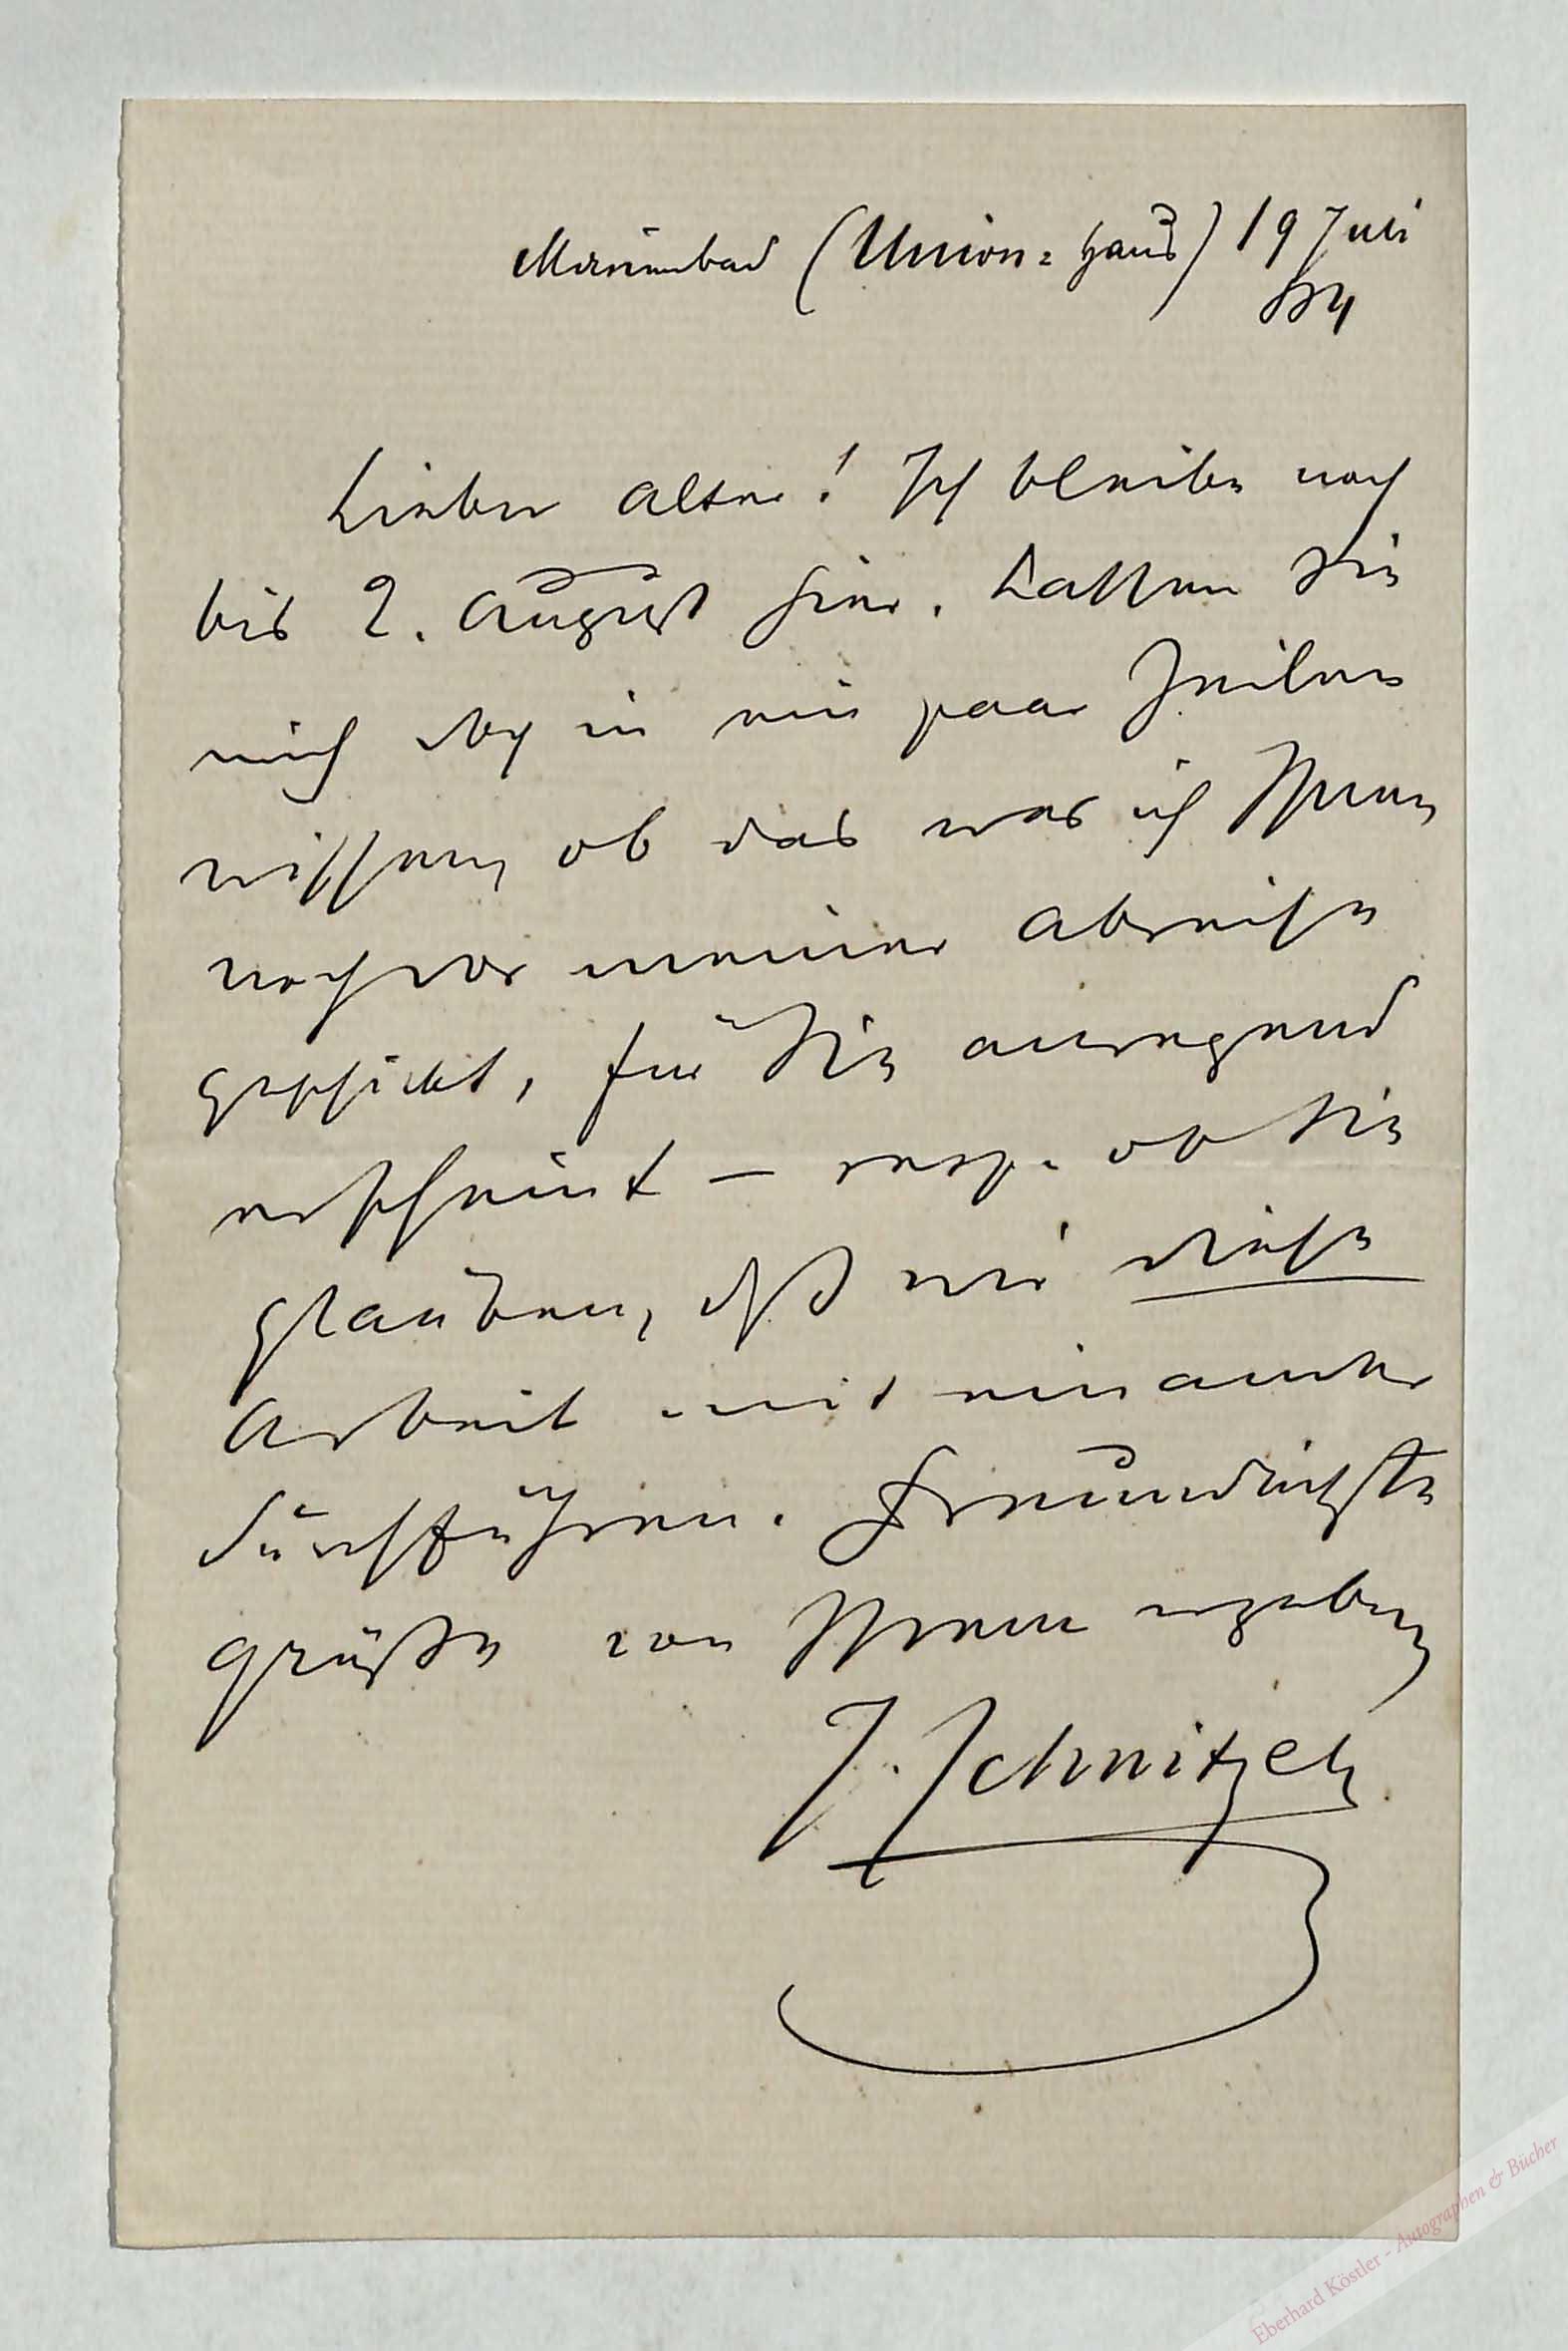 Marienbad (Union-Haus) 19 Juli
84
Lieber Alter! Ich bleibe noch
bis 2. August hier. Lassen Sie
mich doch in ein paar Zeilen
wissen, ob das was ich Ihnen
noch vor meiner Abreise
geschickt, für Sie anregend
erscheint – resp. ob Sie
glauben, daß wir diese
Arbeit mit einander
durchführen. Freundlichste
Grüße von Ihrem ergebenen
J. Schnitzer
Eberhard Köstler - Autographen & Bücher